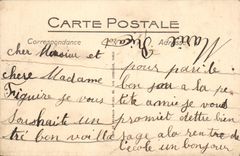 CARTE POSTALE
Correspondance
Adresse
cher Monsieur et
chere Madame
Friquire je vous
soushait un
tré bien voi
pour par
bon jour a la pe
tete amie je vous
promiet dettre bien
sage a la rentre de
l'ecole un bonjour
Marie